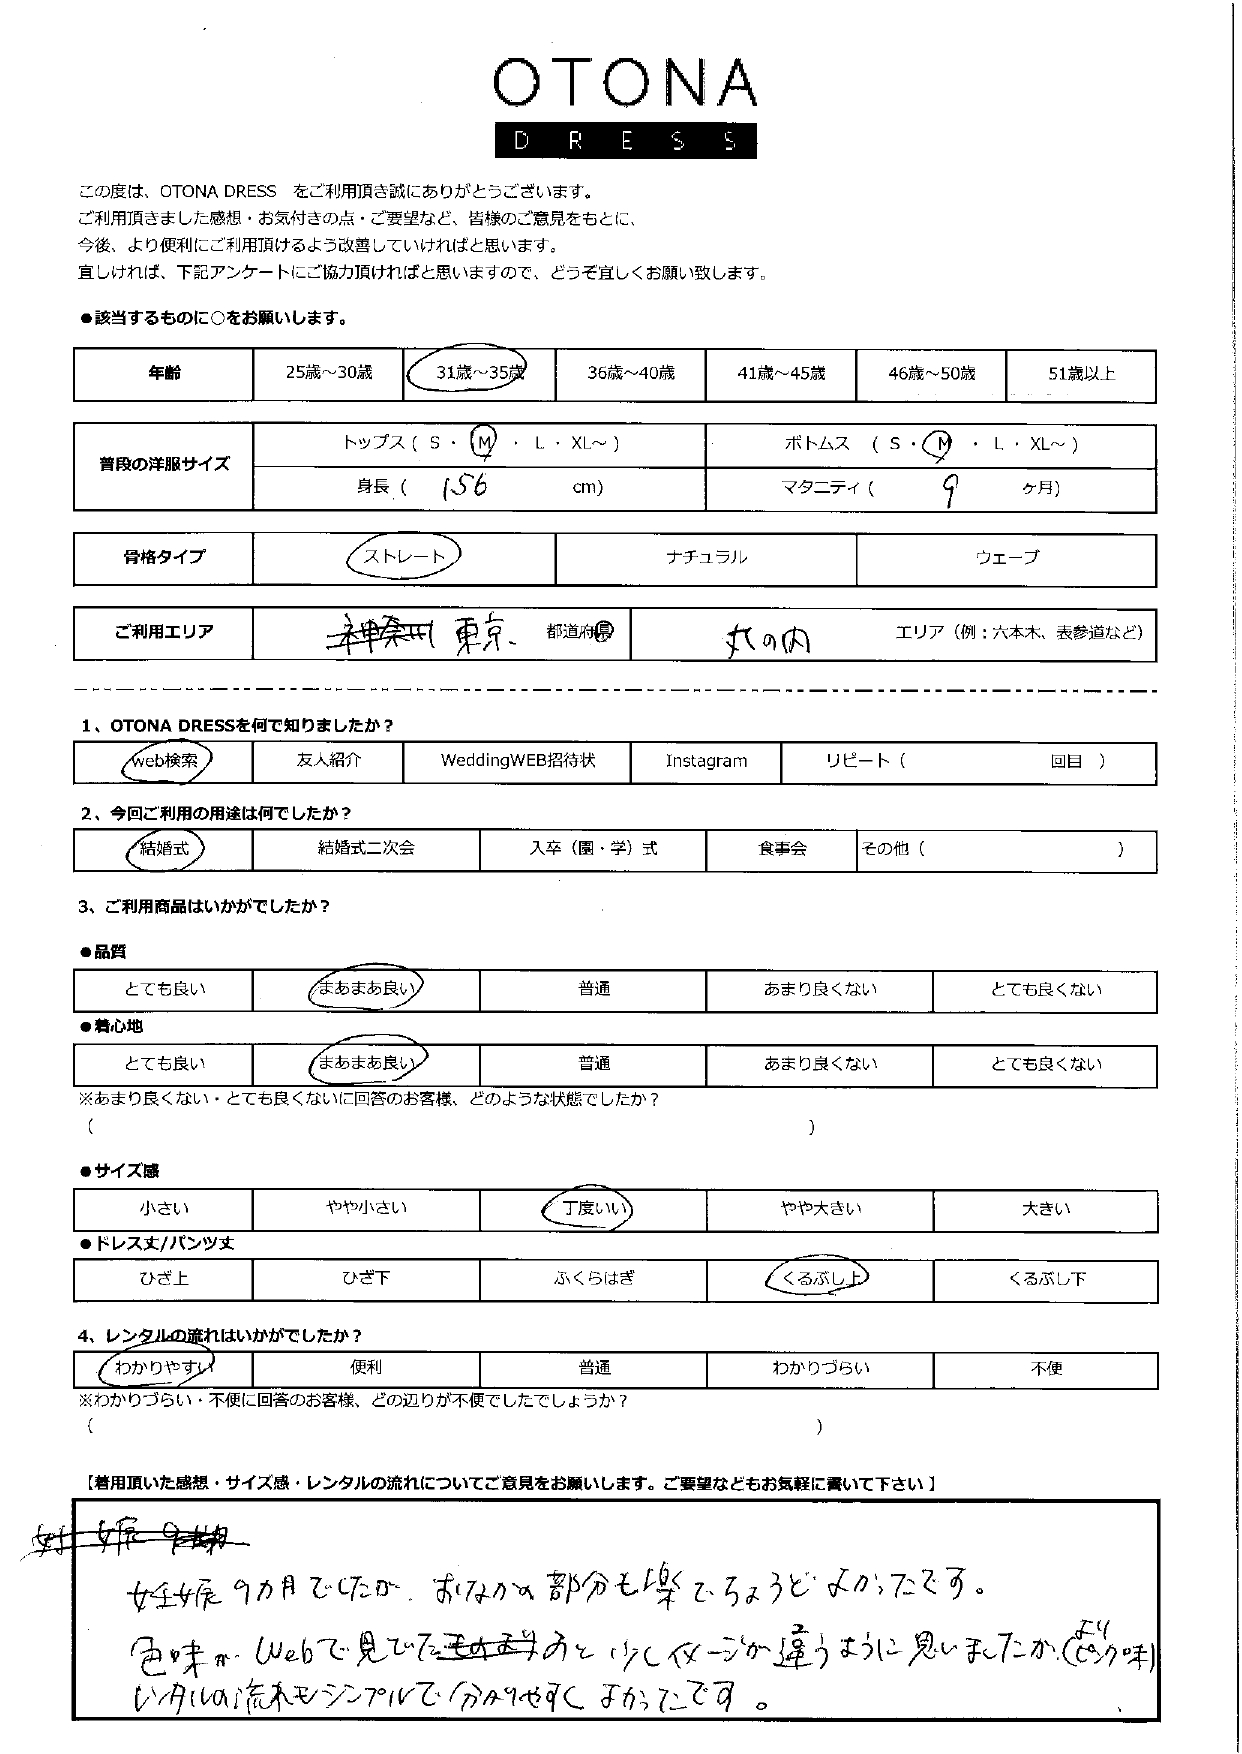 OTONA
DRESS
この度は、OTONA DRESS をご利用頂き誠にありがとうございます。
ご利用頂きました感想・お気付きの点・ご要望など、皆様のご意見をもとに、
今後、より便利にご利用頂けるよう改善していければと思います。
宜しければ、下記アンケートにご協力頂ければと思いますので、どうぞ宜しくお願い致します。
●該当するものに○をお願いします。
年齢 25歳～30歳 31歳～35歳 36歳～40歳 41歳～45歳 46歳～50歳 51歳以上
普段の洋服サイズ
トップス ( S ・ M ・ L ・ XL～ ) ボトムス ( S ・ M ・ L ・ XL～ )
身長 ( 156 cm) マタニティ ( 9 ヶ月)
骨格タイプ ストレート ナチュラル ウェーブ
ご利用エリア 神奈川 東京 都道府県 丸の内 エリア（例：六本木、表参道など）
1、OTONA DRESSを何で知りましたか？
web検索 友人紹介 WeddingWEB招待状 Instagram リピート（ 回目 ）
2、今回ご利用の用途は何でしたか？
結婚式 結婚式二次会 入卒（園・学）式 食事会 その他（ ）
3、ご利用商品はいかがでしたか？
●品質
とても良い まあまあ良い 普通 あまり良くない とても良くない
●着心地
とても良い まあまあ良い 普通 あまり良くない とても良くない
※あまり良くない・とても良くないに回答のお客様、どのような状態でしたか？
( )
●サイズ感
小さい やや小さい 丁度いい やや大きい 大きい
●ドレス丈/パンツ丈
ひざ上 ひざ下 ふくらはぎ くるぶし上 くるぶし下
4、レンタルの流れはいかがでしたか？
わかりやすい 便利 普通 わかりづらい 不便
※わかりづらい・不便に回答のお客様、どの辺りが不便でしたでしょうか？
( )
【着用頂いた感想・サイズ感・レンタルの流れについてご意見をお願いします。ご要望などもお気軽に書いて下さい】
妊娠9カ月でしたが、おなかの部分も楽でちょうどよかったです。
色味が Webで見ていたのと少しイメージが違うように思いましたが、(よりピンク味)
レンタルの流れもシンプルで分かりやすくよかったです。